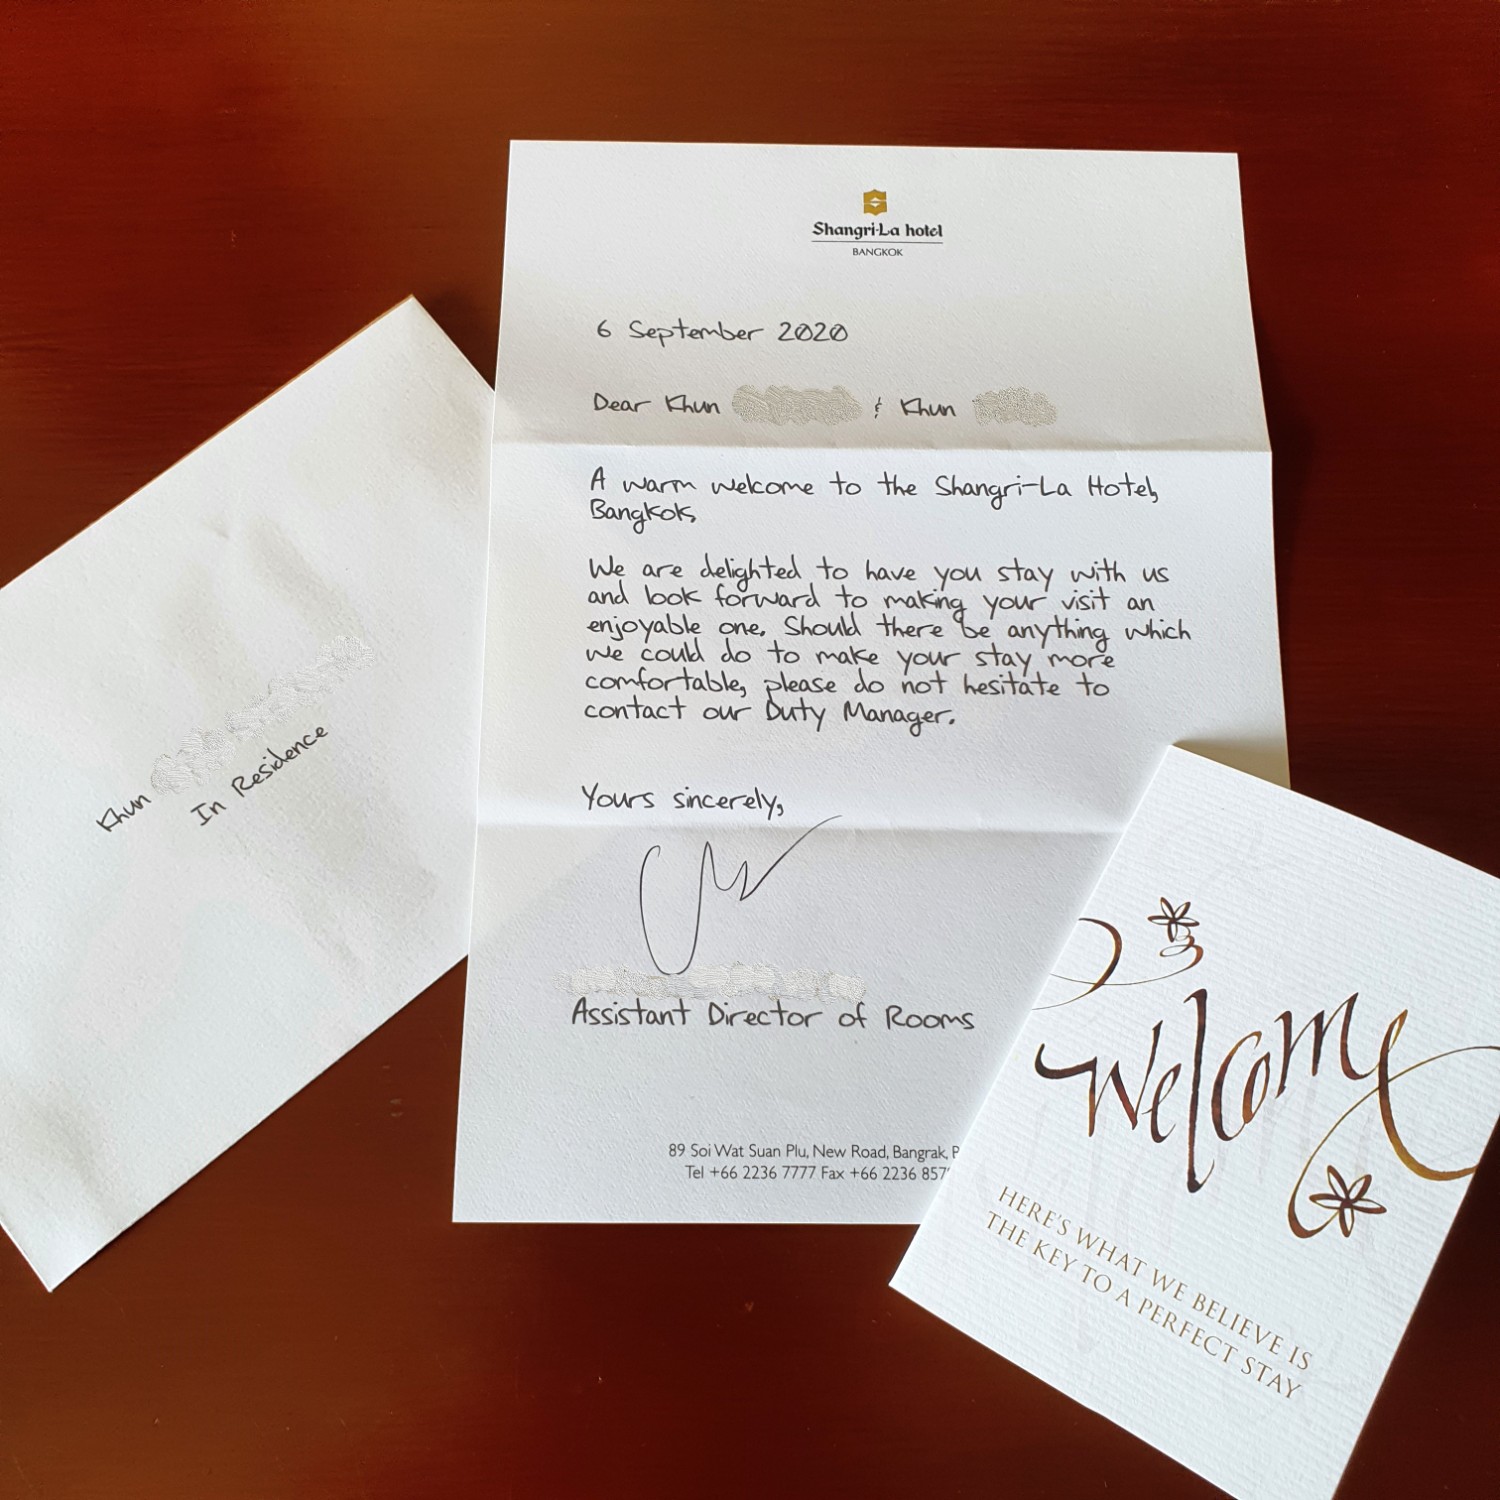 Shangri-La hotel
BANGKOK
6 September 2020
Dear Khun & Khun
A warm welcome to the Shangri-La Hotel,
Bangkok,
We are delighted to have you stay with us
and look forward to making your visit an
enjoyable one. Should there be anything which
we could do to make your stay more
comfortable, please do not hesitate to
contact our Duty Manager.
Yours sincerely,
Assistant Director of Rooms
89 Soi Wat Suan Plu, New Road, Bangrak,
Tel +66 2236 7777 Fax +66 2236
Khun
In Residence
Welcome
HERE'S WHAT WE BELIEVE IS
THE KEY TO A PERFECT STAY